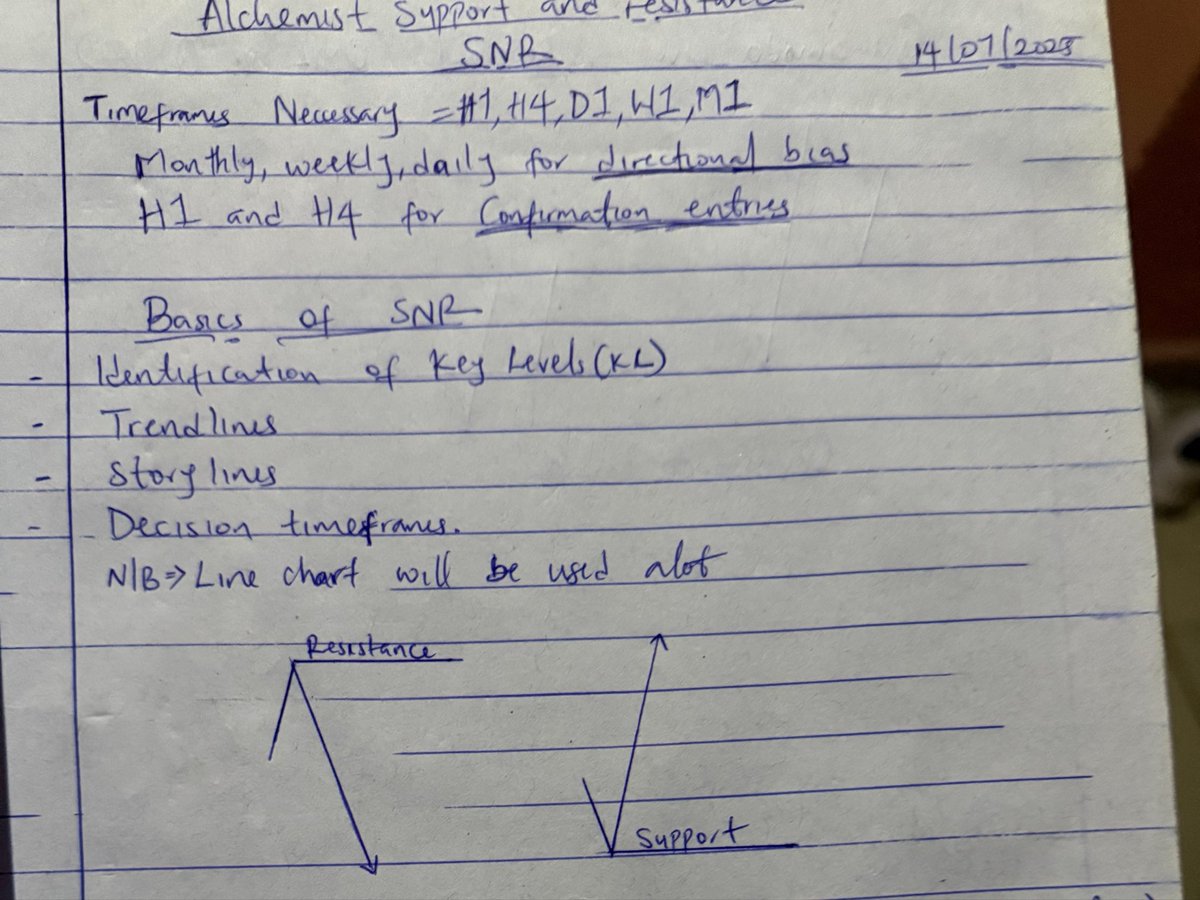 Alchemist Support and resistance
SNR
14/07/2025
Timeframes Necessary = H1, H4, D1, W1, M1
Monthly, weekly, daily for directional bias
H1 and H4 for Confirmation entries
Basics of SNR
- Identification of Key Levels (KL)
- Trendlines
- Story lines
- Decision timeframes.
N/B => Line chart will be used alot
Resistance
Support